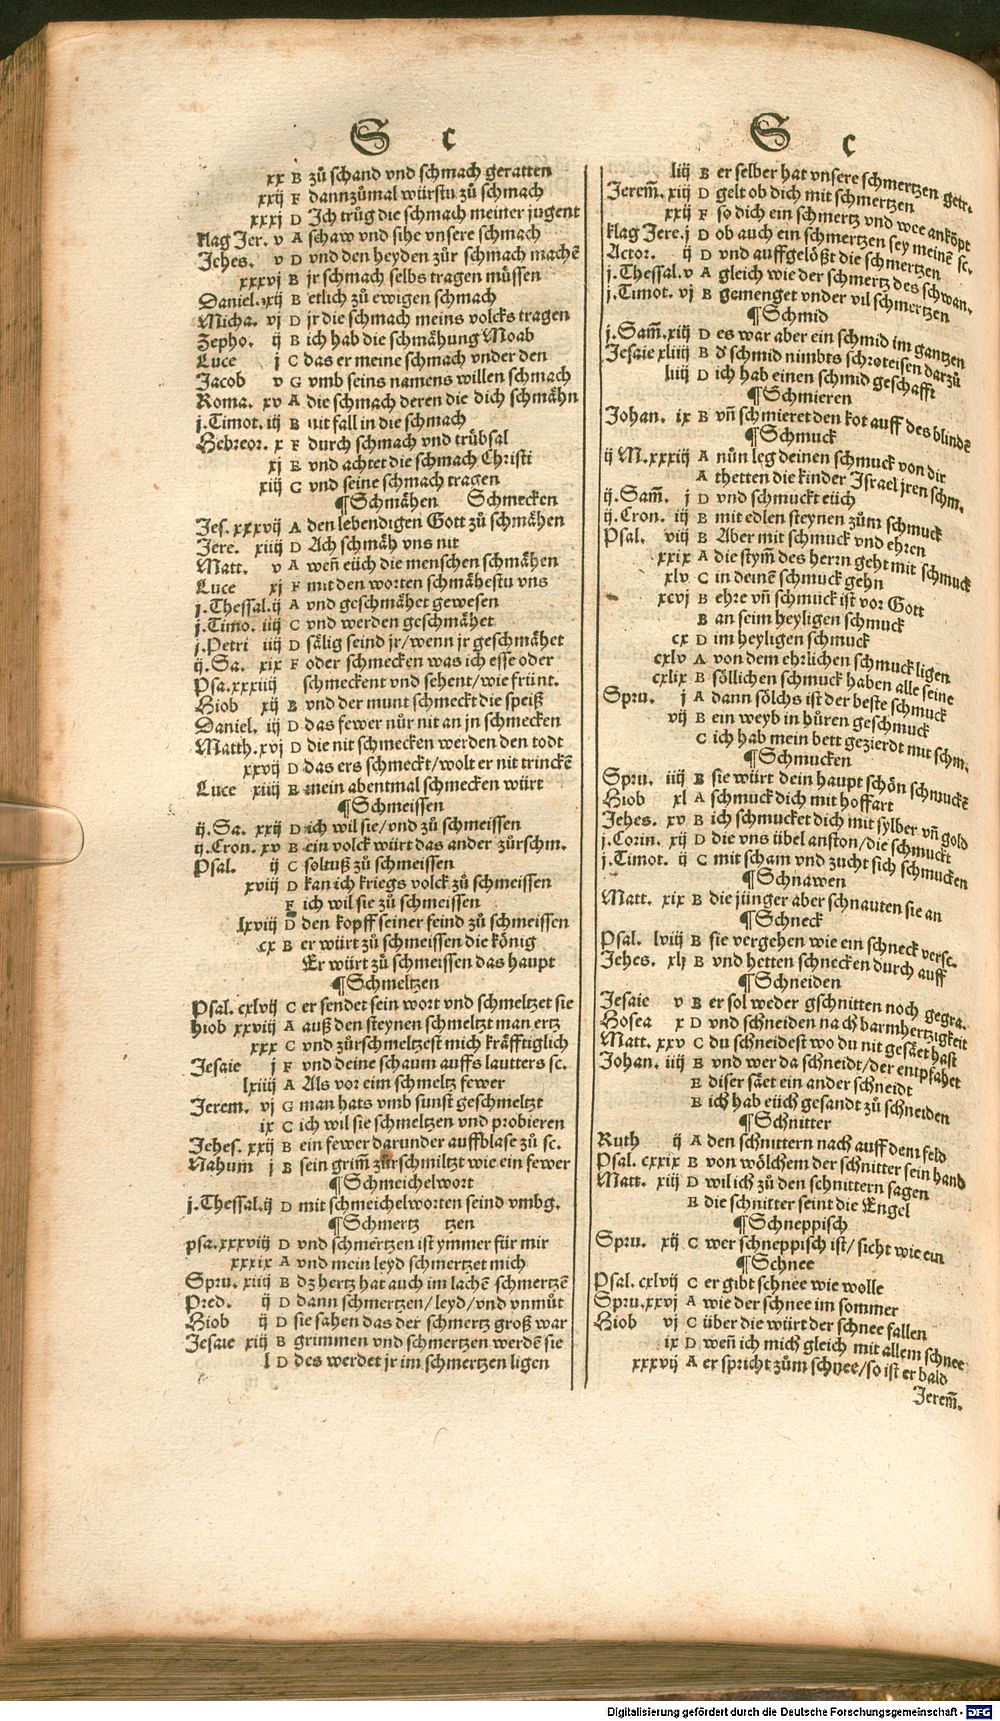 S c
xx B zů schand vnd schmach geratten
xxij F dannzůmal würstu zů schmach
xxxj D Ich trůg die schmach meiner jugent
klag Jer. v A schaw vnd sihe vnsere schmach
Jehes. v D vnd den heyden zůr schmach machē
xxxvj B jr schmach selbs tragen müssen
Daniel. xij B etlich zů ewigen schmach
Micha. vj D jr die schmach meins volcks tragen
Zepho. ij B ich hab die schmähung Moab
Luce j C das er meine schmach vnder den
Jacob v G vmb seins namens willen schmach
Roma. xv A die schmach deren die dich schmähn
j.Timot. iij B nit fall in die schmach
Hebreor. x F durch schmach vnd trübsal
xj E vnd achtet die schmach Christi
xiij G vnd seine schmach tragen
¶Schmähen Schmecken
Jes. xxxvij A den lebendigen Gott zů schmähen
Jere. xiiij D Ach schmäh vns nit
Matt. v A weñ eüch die menschen schmähen
Luce xj F mit den worten schmähestu vns
j.Thessal.ij A vnd geschmähet gewesen
j.Timo. iiij C vnd werden geschmähet
j.Petri iiij D sälig seind jr/wenn jr geschmähet
ij.Sa. xix F oder schmecken was ich esse oder
Psa.xxxiiij schmeckent vnd sehent/wie früut.
Hiob xij B vnd der munt schmeckt die speiß
Daniel. iij D das fewer nůr nit an jn schmecken
Matth.xvj D die nit schmecken werden den todt
xxvij D das ers schmeckt/wolt er nit trinckē
Luce xiiij E mein abentmal schmecken würt
¶Schmeissen
ij.Sa. xxij D ich wil sie/vnd zů schmeissen
ij.Cron. xv B ein volck würt das ander zürschm.
Psal. ij C soltuß zů schmeissen
xviij D kan ich kriegs volck zů schmeissen
F ich wil sie zů schmeissen
lxviij D den kopff seiner feind zů schmeissen
cx B er würt zů schmeissen die könig
Er würt zů schmeissen das haupt
¶Schmeltzen
Psal. cxlvij C er sendet sein wort vnd schmeltzet sie
hiob xxviij A auß den steynen schmeltzt man ertz
xxx C vnd zůrschmeltzest mich kräfftiglich
Jesaie j F vnd deine schaum auffs lautters ꝛc.
lxiiij A Als vor eim schmeltz fewer
Jerem. vj G man hats vmb sunst geschmeltzt
ix C ich wil sie schmeltzen vnd probieren
Jehes. xxij B ein fewer darunder auffblase zů ꝛc.
Nahum j B sein grim̄ zůrschmiltzt wie ein fewer
¶Schmeichelwort
j.Thessal.ij D mit schmeichelworten seind vmbg.
¶Schmertz tzen
psa.xxxviij D vnd schmertzen ist ymmer für mir
xxxix A vnd mein leyd schmertzet mich
Spru. xiiij B dz hertz hat auch im lachē schmertzē
Pred. ij D dann schmertzen/leyd/vnd vnmůt
Hiob ij D sie sahen das der schmertz groß war
Jesaie xiij B grimmen vnd schmertzen werdē sie
l D des werdet jr im schmertzen ligen
S c
liij B er selber hat vnsere schmertzen getr.
Jerem̄. xiij D gelt ob dich mit schmertzen
xxij F so dich ein schmertz vnd wee anköpt
klag Jere.j D ob auch ein schmertzen sey meinē ꝛc.
Actor. ij D vnd auffgelößt die schmertzen
j.Thessal. v A gleich wie der schmertz des schwan.
j.Timot. vj B gemenget vnder vil schmertzen
¶Schmid
j.Sam̄. xiij D es war aber ein schmid im gantzen
Jesaie xliiij B d' schmid nimbts schroteisen darzů
liiij D ich hab einen schmid geschafft
¶Schmieren
Johan. ix B vñ schmieret den kot auff des blindē
¶Schmuck
ij M.xxxiij A nůn leg deinen schmuck von dir
A thetten die kinder Israel jren schm.
ij.Sam̄. j D vnd schmuckt eüch
ij.Cron. iij B mit edlen steynen zům schmuck
Psal. viij B Aber mit schmuck vnd ehren
xxix A die stym̄ des herrn geht mit schmuck
xlv C in deinē schmuck gehn
xcvj B ehre vñ schmuck ist vor Gott
B an seim heyligen schmuck
cx D im heyligen schmuck
cxlv A von dem ehrlichen schmuck ligen
cxlix B söllichen schmuck haben alle seine
Spru. j A dann sölchs ist der beste schmuck
vij B ein weyb in hůren geschmuck
C ich hab mein bett gezierdt mit schm.
¶Schmucken
Spru. iiij B sie würt dein haupt schön schmuckē
Hiob xl A schmuck dich mit hoffart
Jehes. xv B ich schmucket dich mit sylber vñ gold
j.Corin. xij D die vns übel anston/die schmuckt
j.Timot. ij C mit scham vnd zucht sich schmucken
¶Schnawen
Matt. xix B die jünger aber schnauten sie an
¶Schneck
Psal. lviij B sie vergehen wie ein schneck versc.
Jehes. xlj B vnd hetten schnecken durch auff
¶Schneiden
Jesaie v B er sol weder gschnitten noch gegra.
Hosea x D vnd schneiden nach barmhertzigkeit
Matt. xxv C du schneidest wo du nit gesäet hast
Johan. iiij B vnd wer da schneidt/der entpfahet
E diser säet ein ander schneidt
E ich hab eüch gesandt zů schneiden
¶Schnitter
Ruth ij A den schnittern nach auff dem feld
Psal. cxxix B von wölchem der schnitter sein hand
Matt. xiij D wil ich zů den schnittern sagen
E die schnitter seint die Engel
¶Schneppisch
Spru. xij C wer schneppisch ist/ sicht wie ein
¶Schnee
Psal. cxlvij C er gibt schnee wie wolle
Spru.xxvj A wie der schnee im sommer
Hiob vj C über die würt der schnee fallen
ix D weñ ich mich gleich mit allem schnee
xxxvij A er spricht zům schnee/so ist er bald
Jerem̄.
Digitalisierung gefördert durch die Deutsche Forschungsgemeinschaft - DFG